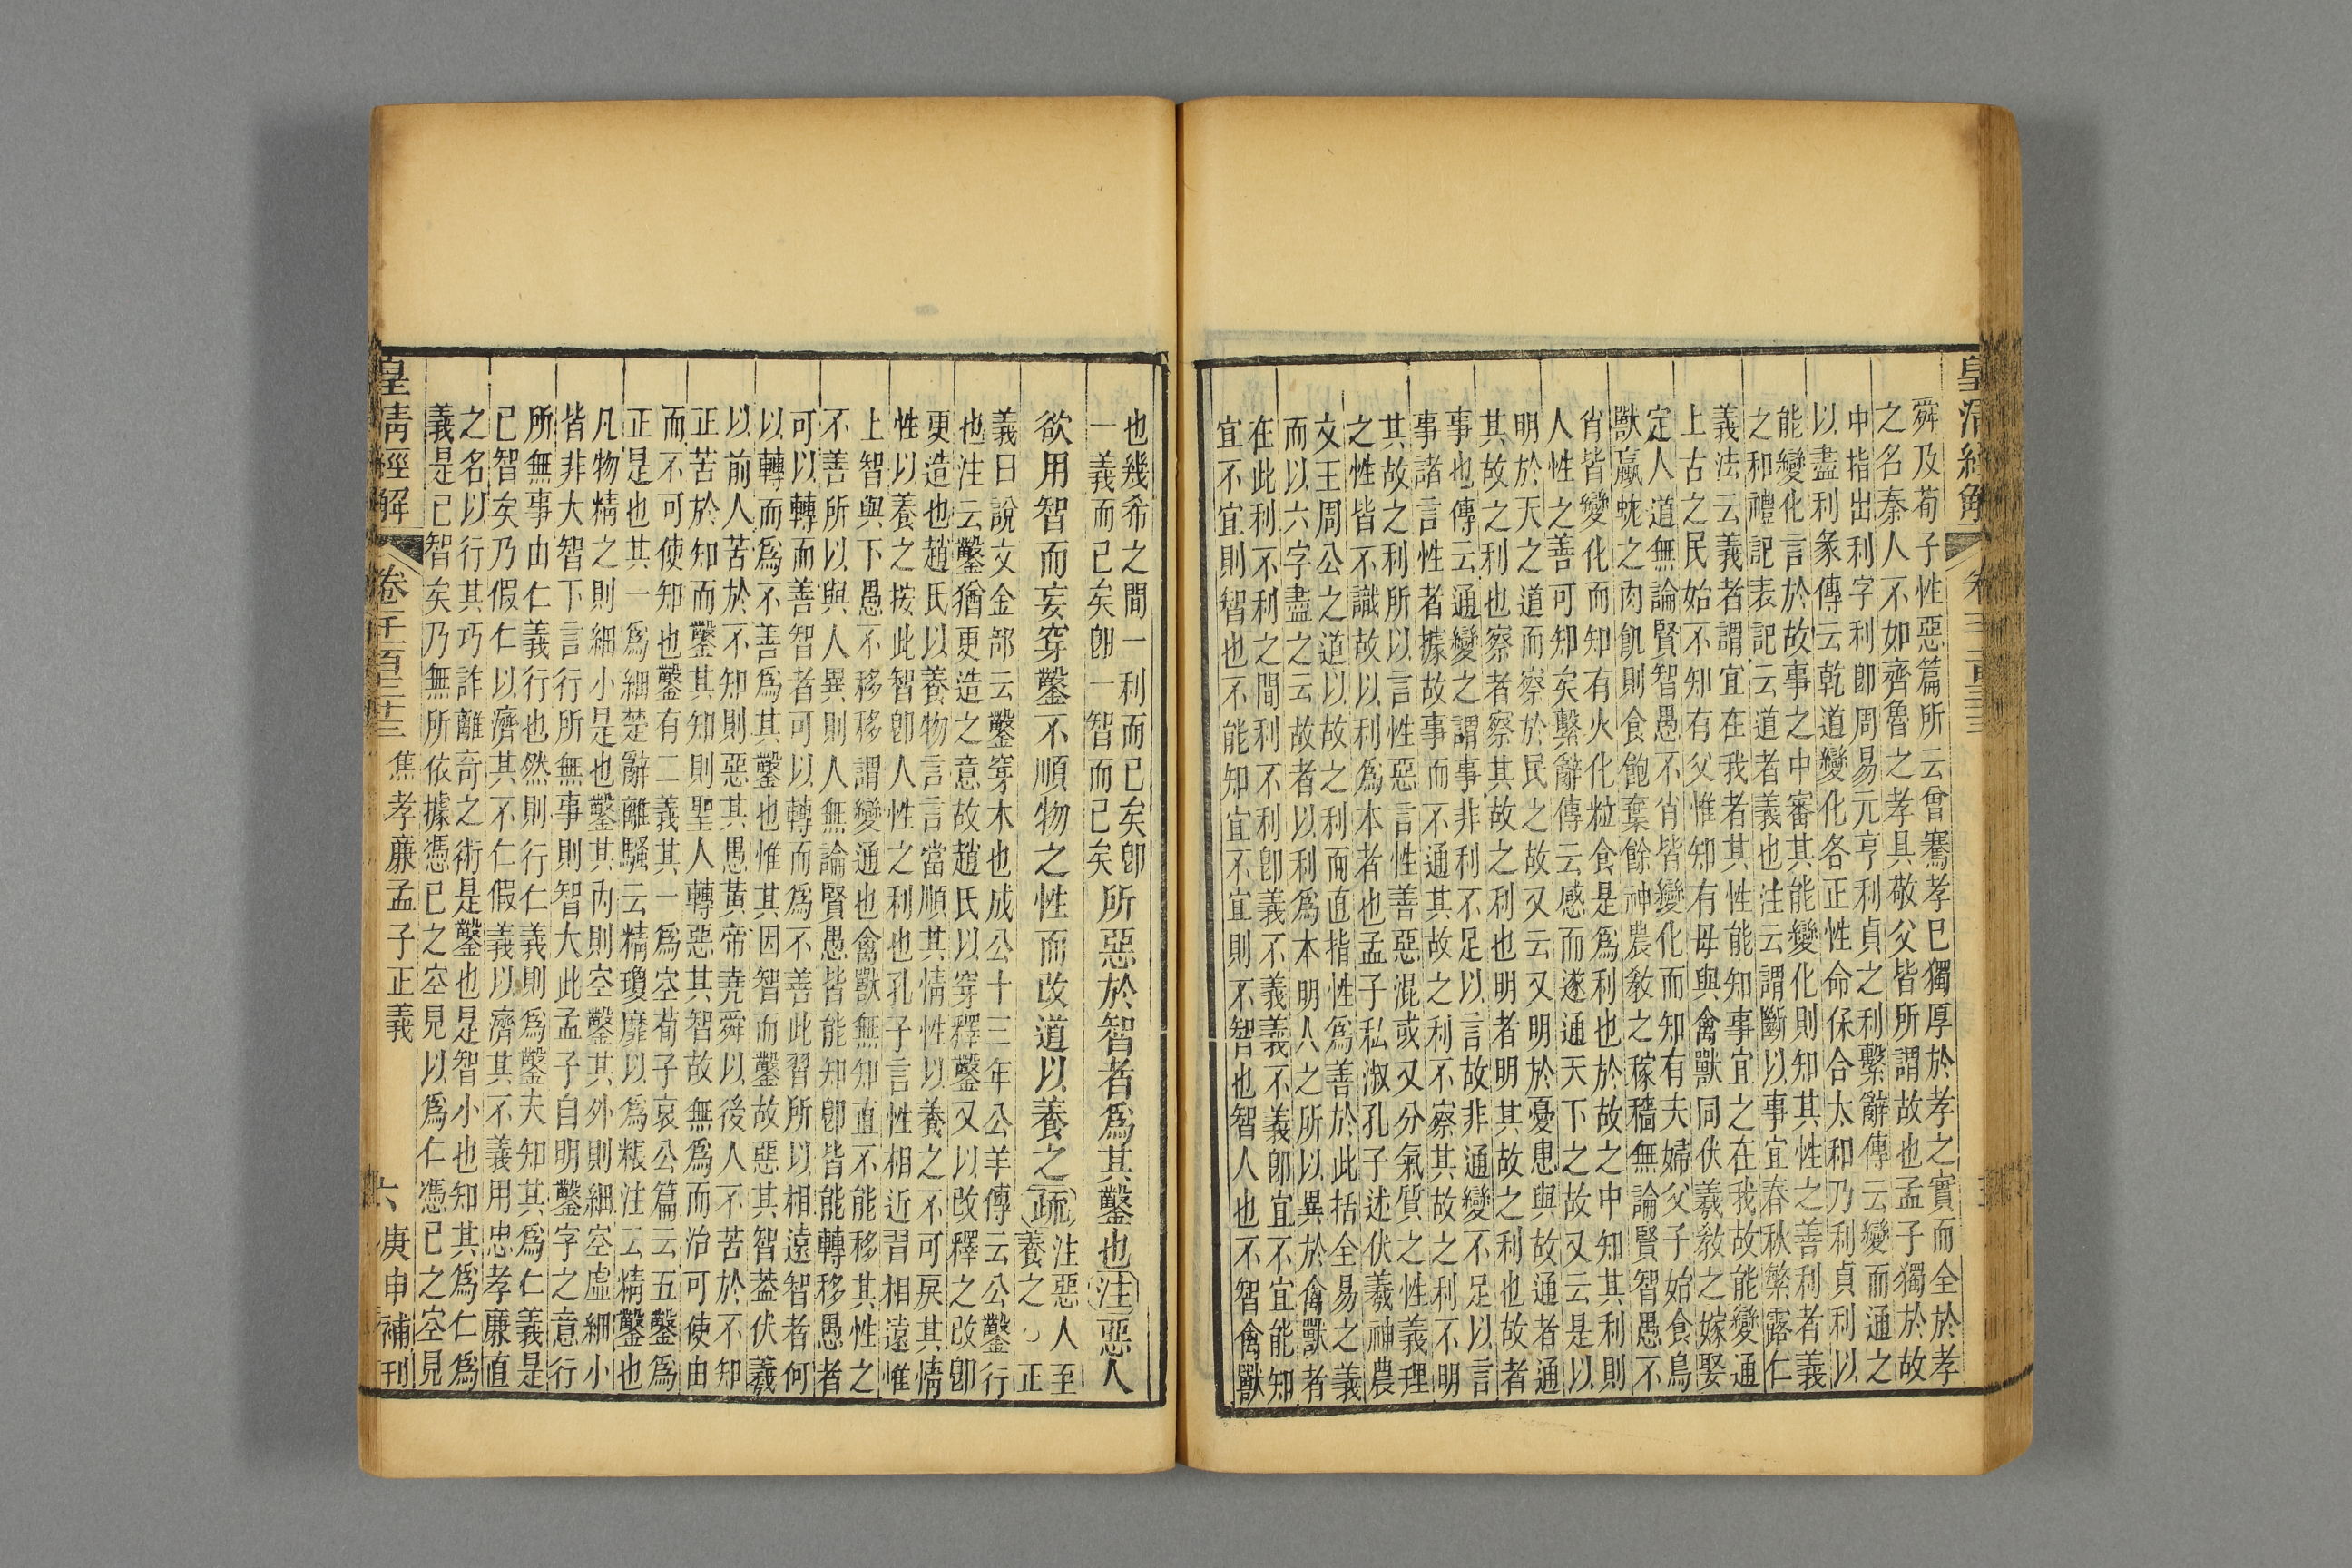 皇清經解
舜及荀子性惡篇所云曾騫孝已獨厚於孝之實而全於孝
之名秦人不如齊魯之孝具敬父皆所謂故也孟子獨於故
中指出利字利卽周易元亨利貞之利繫辭傳云變而通之
以盡利彖傳云乾道變化各正性命保合太和乃利貞利以
能變化言於故事之中審其能變化則知其性之善利者義
之和禮記表記云道者義也注云謂斷以事宜春秋繁露仁
義法云義者謂宜在我者其性能知事宜之在我故能變通
上古之民始不知有父惟知有母與禽獸同伏羲敎之嫁娶
定人道無論賢智愚不肖皆變化而知有夫婦父子始食鳥
獸蠃蛖之肉飢則食飽棄餘神農敎之稼穡無論賢智愚不
肖皆變化而知有火化粒食是爲利也於故之中知其利則
人性之善可知矣繫辭傳云感而遂通天下之故又云是以
明於天之道而察於民之故又云又明於憂患與故通者通
其故之利也察者察其故之利也明者明其故之利也故者
事也傳云通變之謂事非利不足以言故非通變不足以言
事諸言性者據故事而不通其故之利不察其故之利不明
其故之利所以言性惡言性善惡混或又分氣質之性義理
之性皆不識故以利爲本者也孟子私淑孔子述伏羲神農
文王周公之道以故之利而直指性爲善於此括全易之義
而以六字盡之云故者以利爲本明人之所以異於禽獸者
在此利不利之間利不利卽義不義義不義卽宜不宜能知
宜不宜則智也不能知宜不宜則不智也智人也不智禽獸
也幾希之間一利而已矣卽
一義而已矣卽一智而已矣
所惡於智者爲其鑿也注惡人
欲用智而妄穿鑿不順物之性而改道以養之疏
注惡人至
養之○正
義曰說文金部云鑿穿木也成公十三年公羊傳云公鑿行
也注云鑿猶更造之意故趙氏以穿釋鑿又以改釋之改卽
更造也趙氏以養物言言當順其情性以養之不可戾其情
性以養之按此智卽人性之利也孔子言性相近習相遠惟
上智與下愚不移移謂變通也禽獸無知直不能移其性之
不善所以與人異則人無論賢愚皆能知卽皆能轉移愚者
可以轉而善智者可以轉而爲不善此習所以相遠智者何
以轉而爲不善爲其鑿也惟其因智而鑿故惡其智蓋伏羲
以前人苦於不知則惡其愚黃帝堯舜以後人不苦於不知
正苦於知而鑿其知則聖人轉惡其智故無爲而治可使由
而不可使知也鑿有二義其一爲空荀子哀公篇云五鑿爲
正是也其一爲細楚辭離騷云精瓊靡以爲粻注云精鑿也
凡物精之則細小是也鑿其內則空鑿其外則細空虛細小
皆非大智下言行所無事則智大此孟子自明鑿字之意行
所無事由仁義行也然則行仁義則爲鑿夫知其爲仁義是
已智矣乃假仁以濟其不仁假義以濟其不義用忠孝廉直
之名以行其巧詐離奇之術是鑿也是智小也知其爲仁爲
義是已智矣乃無所依據憑已之空見以爲仁憑已之空見
皇清經解 卷千百三十三 焦孝廉孟子正義 六 庚申補刊